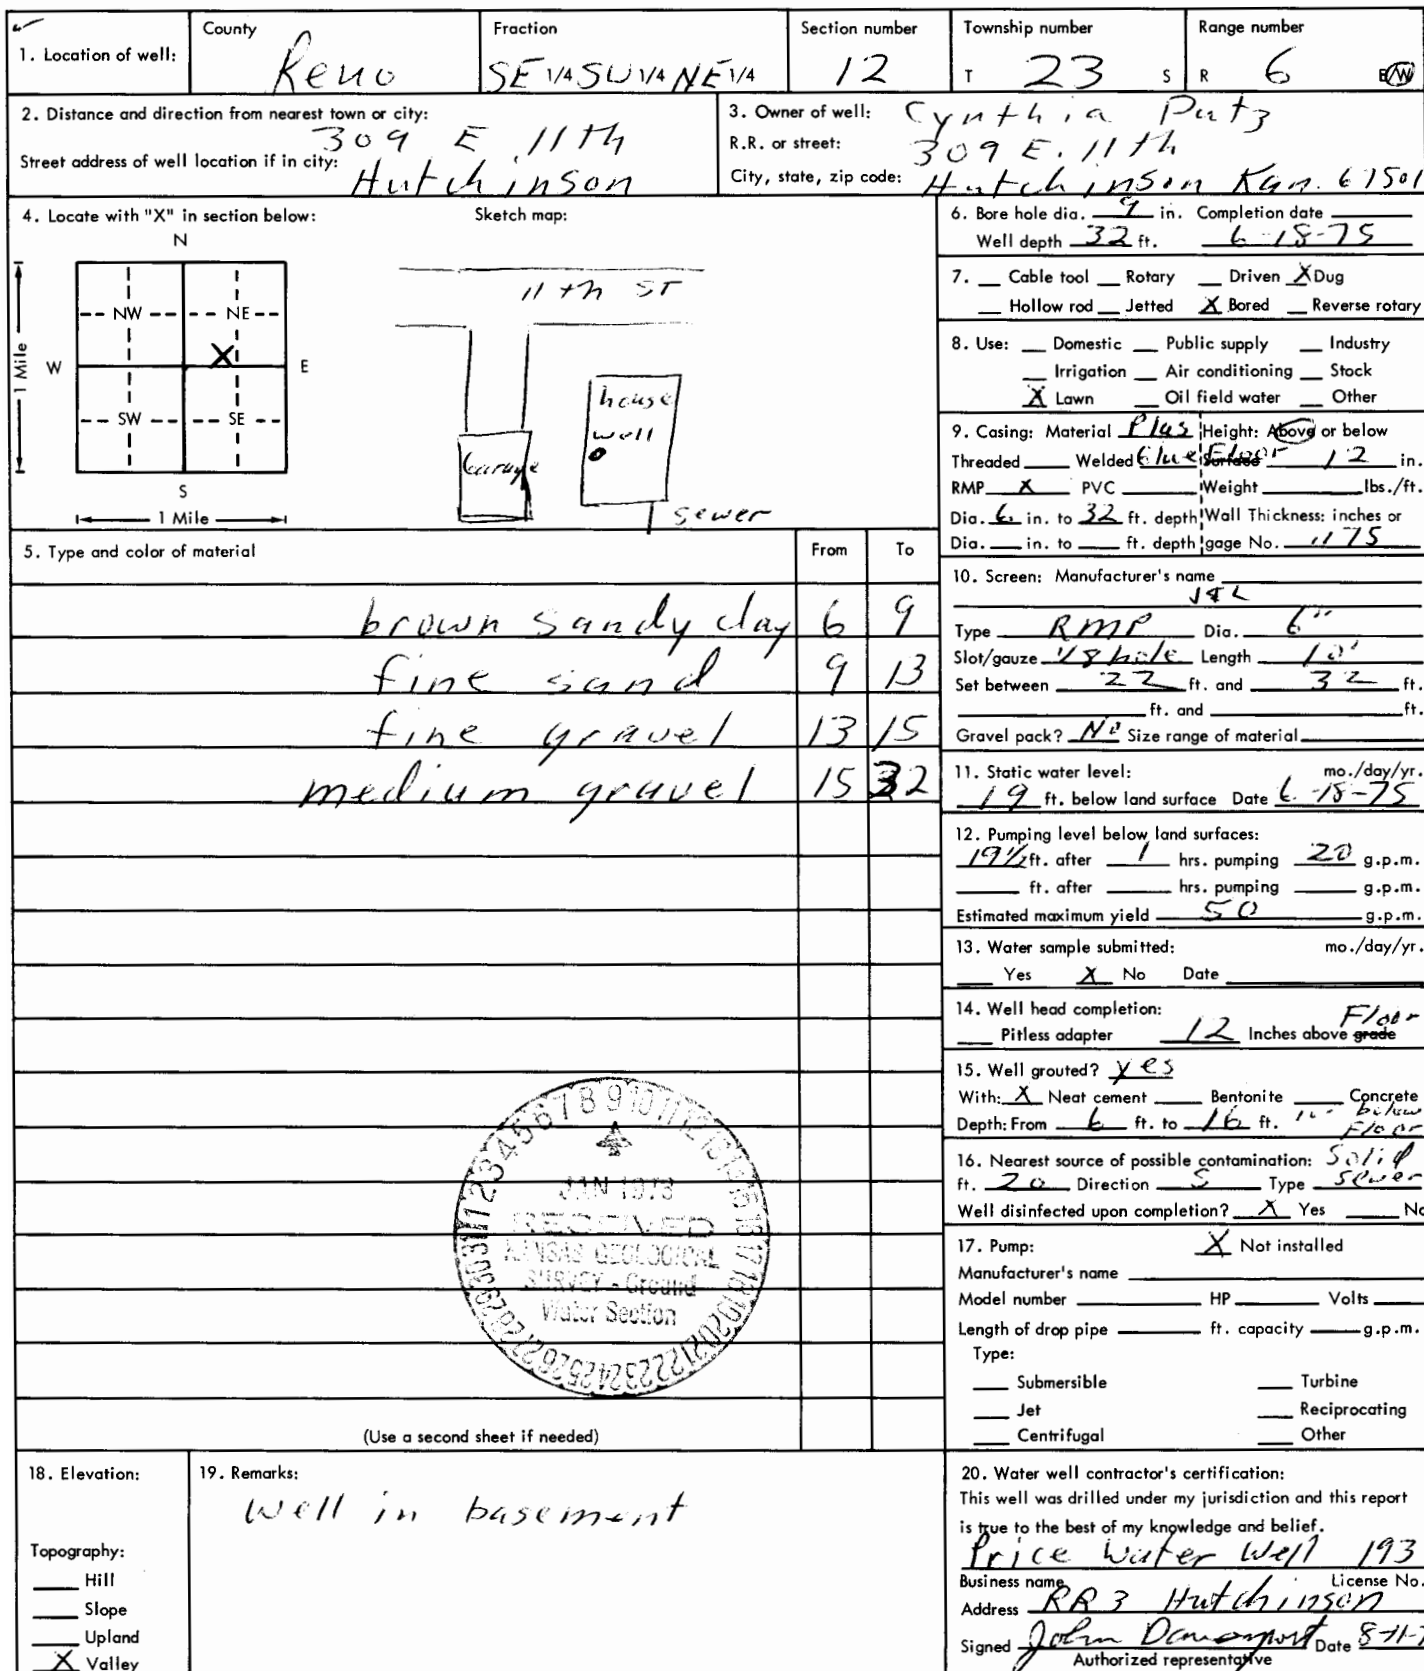 1. Location of well:
County
Reno
Fraction
SE 1/4 SW 1/4 NE 1/4
Section number
12
Township number
T 23 S
Range number
R 6 E/W
2. Distance and direction from nearest town or city:
309 E 11th
Street address of well location if in city:
Hutchinson
3. Owner of well: Cynthia Putz
R.R. or street: 309 E. 11th
City, state, zip code: Hutchinson Kan. 67501
4. Locate with "X" in section below:
N
NW NE
W X E
SW SE
S
1 Mile
1 Mile
Sketch map:
11th ST
house
well
Garage
sewer
5. Type and color of material From To
brown sandy clay 6 9
fine sand 9 13
fine gravel 13 15
medium gravel 15 32
(Use a second sheet if needed)
JAN 1978
RECEIVED
KANSAS GEOLOGICAL
SURVEY - Ground
Water Section
6. Bore hole dia. 9 in. Completion date
Well depth 32 ft. 6-18-75
7. Cable tool Rotary Driven X Dug
Hollow rod Jetted X Bored Reverse rotary
8. Use: Domestic Public supply Industry
Irrigation Air conditioning Stock
X Lawn Oil field water Other
9. Casing: Material Plas Height: Above or below
Threaded Welded Glue Surface Floor 12 in.
RMP X PVC Weight lbs./ft.
Dia. 6 in. to 32 ft. depth Wall Thickness: inches or
Dia. in. to ft. depth gage No. 1175
10. Screen: Manufacturer's name
Type RMP Dia. 6"
Slot/gauze 1/8 hole Length 10'
Set between 22 ft. and 32 ft.
ft. and ft.
Gravel pack? No Size range of material
11. Static water level: mo./day/yr.
19 ft. below land surface Date 6-18-75
12. Pumping level below land surfaces:
19 1/2 ft. after 1 hrs. pumping 20 g.p.m.
ft. after hrs. pumping g.p.m.
Estimated maximum yield 50 g.p.m.
13. Water sample submitted: mo./day/yr.
Yes X No Date
14. Well head completion:
Pitless adapter 12 Inches above grade Floor
15. Well grouted? yes
With: X Neat cement Bentonite Concrete
Depth: From 6 ft. to 16 ft. below
Floor
16. Nearest source of possible contamination: Solid
ft. 20 Direction S Type Sewer
Well disinfected upon completion? X Yes No
17. Pump: X Not installed
Manufacturer's name
Model number HP Volts
Length of drop pipe ft. capacity g.p.m.
Type:
Submersible Turbine
Jet Reciprocating
Centrifugal Other
18. Elevation:
Topography:
Hill
Slope
Upland
X Valley
19. Remarks:
Well in basement
20. Water well contractor's certification:
This well was drilled under my jurisdiction and this report
is true to the best of my knowledge and belief.
Price Water Well 193
Business name License No.
Address RR 3 Hutchinson
Signed John Davenport Date 8-11-7
Authorized representative